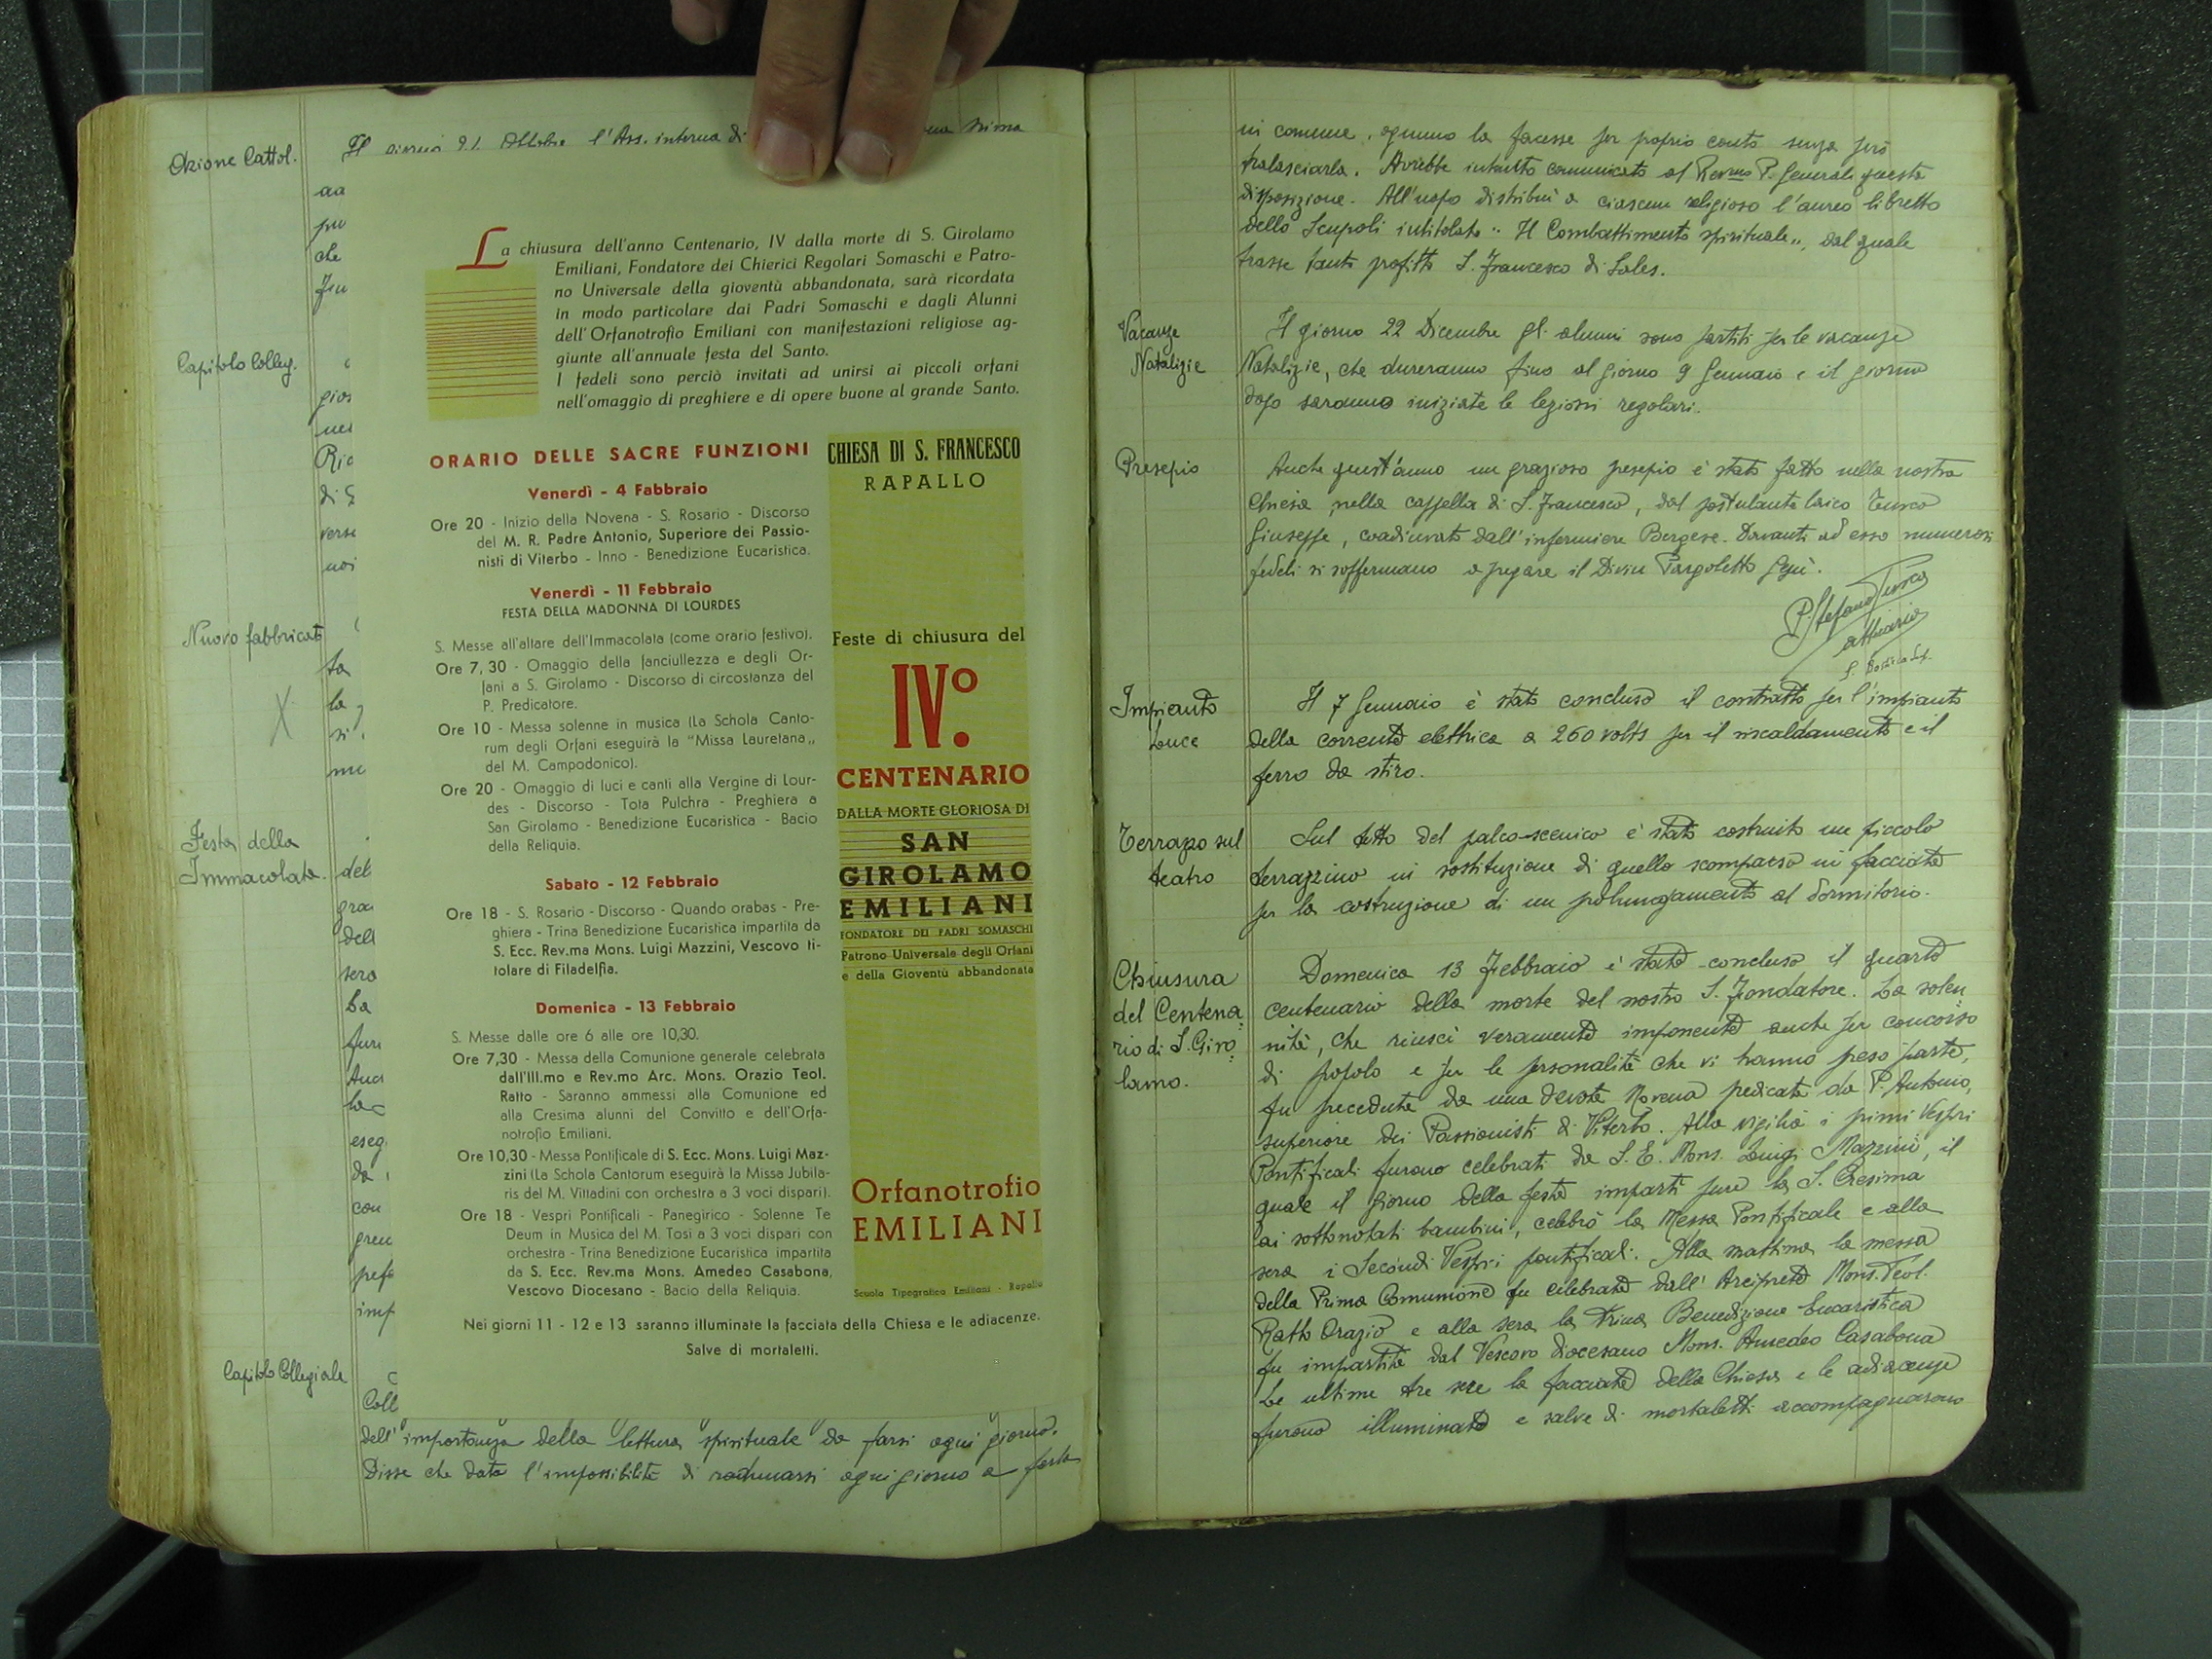 Azione Cattol.
Il giorno 21 Ottobre l'Ass. interna di
aa
pu
che
Capitolo Colleg.
gior
Ric
di S
verse
noi
Nuovo fabbricato
ta
la
si
Festa della
Immacolata.
del
gra
dell
sera
La
fun
Anc
la
eseg
da
con
Capitolo Collegiale
Coll
La chiusura dell'anno Centenario, IV dalla morte di S. Girolamo
Emiliani, Fondatore dei Chierici Regolari Somaschi e Patro-
no Universale della gioventù abbandonata, sarà ricordata
in modo particolare dai Padri Somaschi e dagli Alunni
dell'Orfanotrofio Emiliani con manifestazioni religiose ag-
giunte all'annuale festa del Santo.
I fedeli sono perciò invitati ad unirsi ai piccoli orfani
nell'omaggio di preghiere e di opere buone al grande Santo.
ORARIO DELLE SACRE FUNZIONI
Venerdì - 4 Fabbraio
Ore 20 - Inizio della Novena - S. Rosario - Discorso
del M. R. Padre Antonio, Superiore dei Passio-
nisti di Viterbo - Inno - Benedizione Eucaristica.
Venerdì - 11 Febbraio
FESTA DELLA MADONNA DI LOURDES
S. Messe all'altare dell'Immacolata (come orario festivo).
Ore 7, 30 - Omaggio della fanciullezza e degli Or-
fani a S. Girolamo - Discorso di circostanza del
P. Predicatore.
Ore 10 - Messa solenne in musica (La Schola Canto-
rum degli Orfani eseguirà la "Missa Lauretana„
del M. Campodonico).
Ore 20 - Omaggio di luci e canti alla Vergine di Lour-
des - Discorso - Tota Pulchra - Preghiera a
San Girolamo - Benedizione Eucaristica - Bacio
della Reliquia.
Sabato - 12 Febbraio
Ore 18 - S. Rosario - Discorso - Quando orabas - Pre-
ghiera - Trina Benedizione Eucaristica impartita da
S. Ecc. Rev.ma Mons. Luigi Mazzini, Vescovo ti-
tolare di Filadelfia.
Domenica - 13 Febbraio
S. Messe dalle ore 6 alle ore 10,30.
Ore 7,30 - Messa della Comunione generale celebrata
dall'Ill.mo e Rev.mo Arc. Mons. Orazio Teol.
Ratto - Saranno ammessi alla Comunione ed
alla Cresima alunni del Convitto e dell'Orfa-
notrofio Emiliani.
Ore 10,30 - Messa Pontificale di S. Ecc. Mons. Luigi Maz-
zini (La Schola Cantorum eseguirà la Missa Jubila-
ris del M. Vittadini con orchestra a 3 voci dispari).
Ore 18 - Vespri Pontificali - Panegirico - Solenne Te
Deum in Musica del M. Tosi a 3 voci dispari con
orchestra - Trina Benedizione Eucaristica impartita
da S. Ecc. Rev.ma Mons. Amedeo Casabona,
Vescovo Diocesano - Bacio della Reliquia.
Nei giorni 11 - 12 e 13 saranno illuminate la facciata della Chiesa e le adiacenze.
Salve di mortaletti.
CHIESA DI S. FRANCESCO
RAPALLO
Feste di chiusura del
IVº.
CENTENARIO
DALLA MORTE GLORIOSA DI
SAN
GIROLAMO
EMILIANI
FONDATORE DEI PADRI SOMASCHI
Patrono Universale degli Orfani
e della Gioventù abbandonata
Orfanotrofio
EMILIANI
Scuola Tipografica Emiliani - Rapallo
dell'importanza della lettura spirituale da farsi ogni giorno.
Disse che data l'impossibilità di radunarsi ogni giorno a farla
in comune, ognuno la facesse per proprio conto senza però
tralasciarla. Avrebbe intanto comunicato al Rev.mo P. Generale questa
disposizione. All'uopo distribuì a ciascun religioso l'aureo libretto
dello Scupoli intitolato "Il Combattimento spirituale„, dal quale
trasse tanto profitto S. Francesco di Sales.
Vacanze
Natalizie
Il giorno 22 Dicembre gli alunni sono partiti per le vacanze
Natalizie, che dureranno fino al giorno 9 Gennaio e il giorno
dopo saranno iniziate le lezioni regolari.
Presepio
Anche quest'anno un grazioso presepio è stato fatto nella nostra
Chiesa nella cappella di S. Francesco, dal postulante laico Turco
Giuseppe, coadiuvato dall'infermiere Bergese. Davanti ad esso numerosi
fedeli si soffermano a pregare il Divin Pargoletto Gesù.
P. Stefano Turco
attuario
Impianto
Luce
Il 7 Gennaio è stato concluso il contratto per l'impianto
della corrente elettrica a 260 volts per il riscaldamento e il
ferro da stiro.
Terrazo sul
teatro
Sul tetto del palco-scenico è stato costruito un piccolo
terrazzino in sostituzione di quello scomparso in facciata
per la costruzione di un prolungamento al dormitorio.
Chiusura
del Centena
rio di S. Giro
lamo.
Domenica 13 Febbraio è stato concluso il quarto
centenario della morte del nostro S. Fondatore. La solen
nità, che riuscì veramente imponente anche per concorso
di popolo e per le personalità che vi hanno preso parte,
fu preceduta da una devota Novena predicata da P. Antonio,
superiore dei Passionisti di Viterbo. Alla vigilia i primi Vespri
Pontificali furono celebrati da S. E. Mons. Luigi Mazzini, il
quale il giorno della festa impartì pure la S. Cresima
ai sottonotati bambini, celebrò la Messa Pontificale e alla
sera i Secondi Vespri pontificali. Alla mattina la messa
della Prima Comunione fu celebrata dall'Arciprete Mons. Teol.
Ratto Orazio e alla sera la Trina Benedizione Eucaristica
fu impartita dal Vescovo diocesano Mons. Amedeo Casabona
Le ultime tre sere la facciata della Chiesa e le adiacenze
furono illuminate e salve di mortaletti accompagnarono